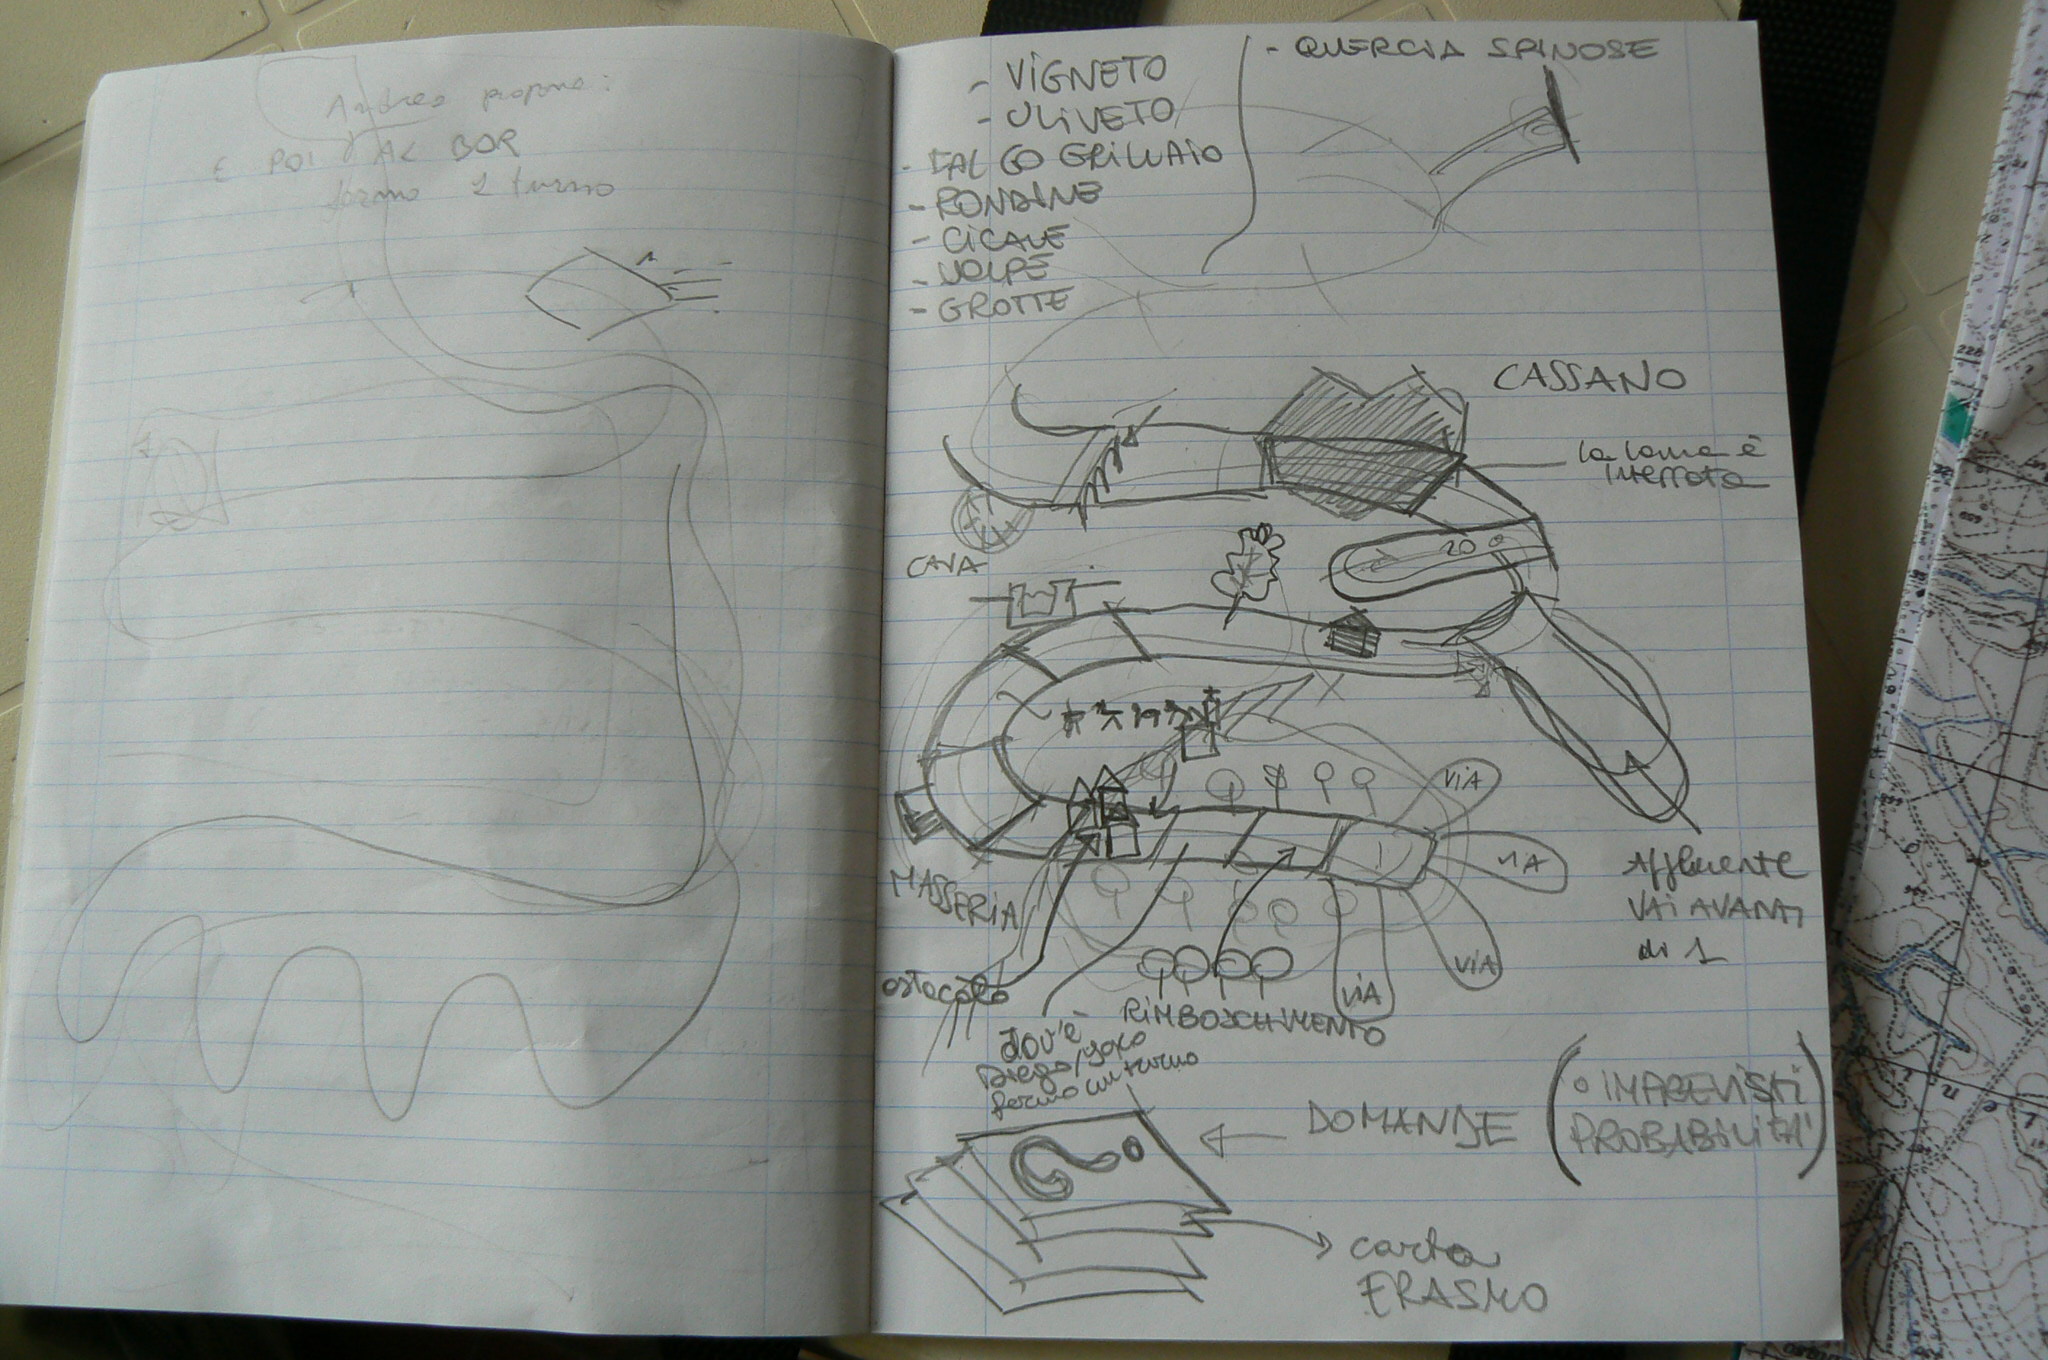 Andrea propone:
E POI AL BOR
fermo 1 turno
- VIGNETO
- ULIVETO
- FALCO GRILLAIO
- RONDINE
- CICALE
- VOLPE
- GROTTE
- QUERCIA SPINOSE
CASSANO
la lama è
interrata
20
CAVA
VIA
VIA
VIA
VIA
MASSERIA
ostacolo
Affluente
VAI AVANTI
di 1
RIMBOSCHIMENTO
dov'è
fermo un turno
DOMANDE
(O IMPREVISTI
PROBABILITA')
carta
ERASMO